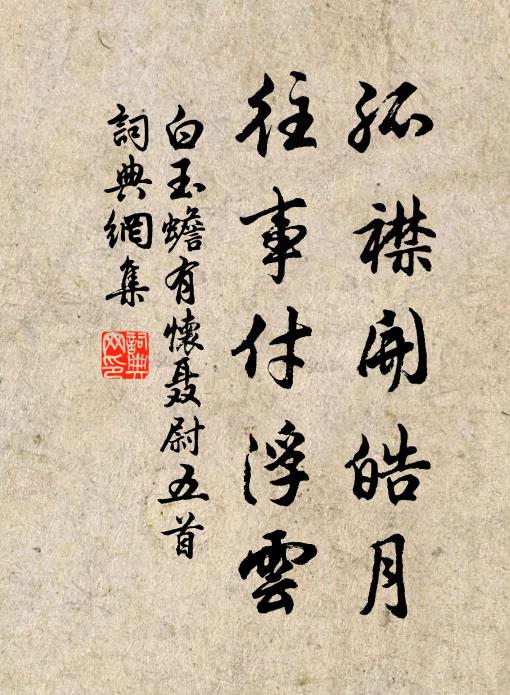 孤襟開皓月
往事付浮雲
白玉蟾有懷聶尉五首
詞典網集
詞典網印